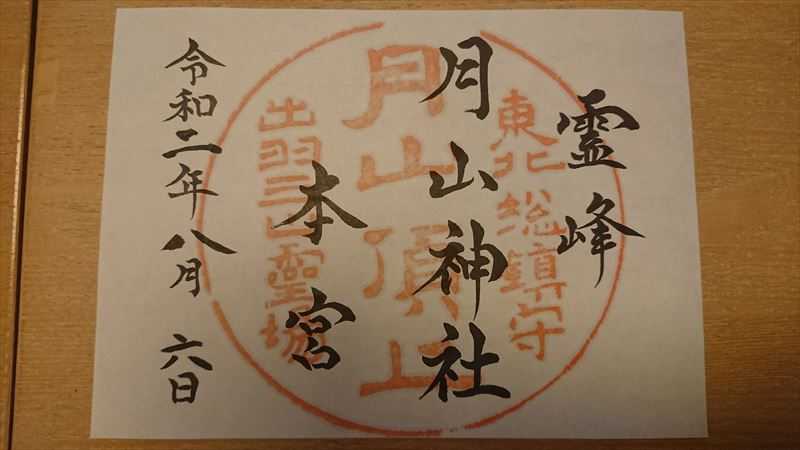 霊峰
東北総鎮守
月山神社
月山頂上
本宮
出羽三山霊場
令和二年八月 六日